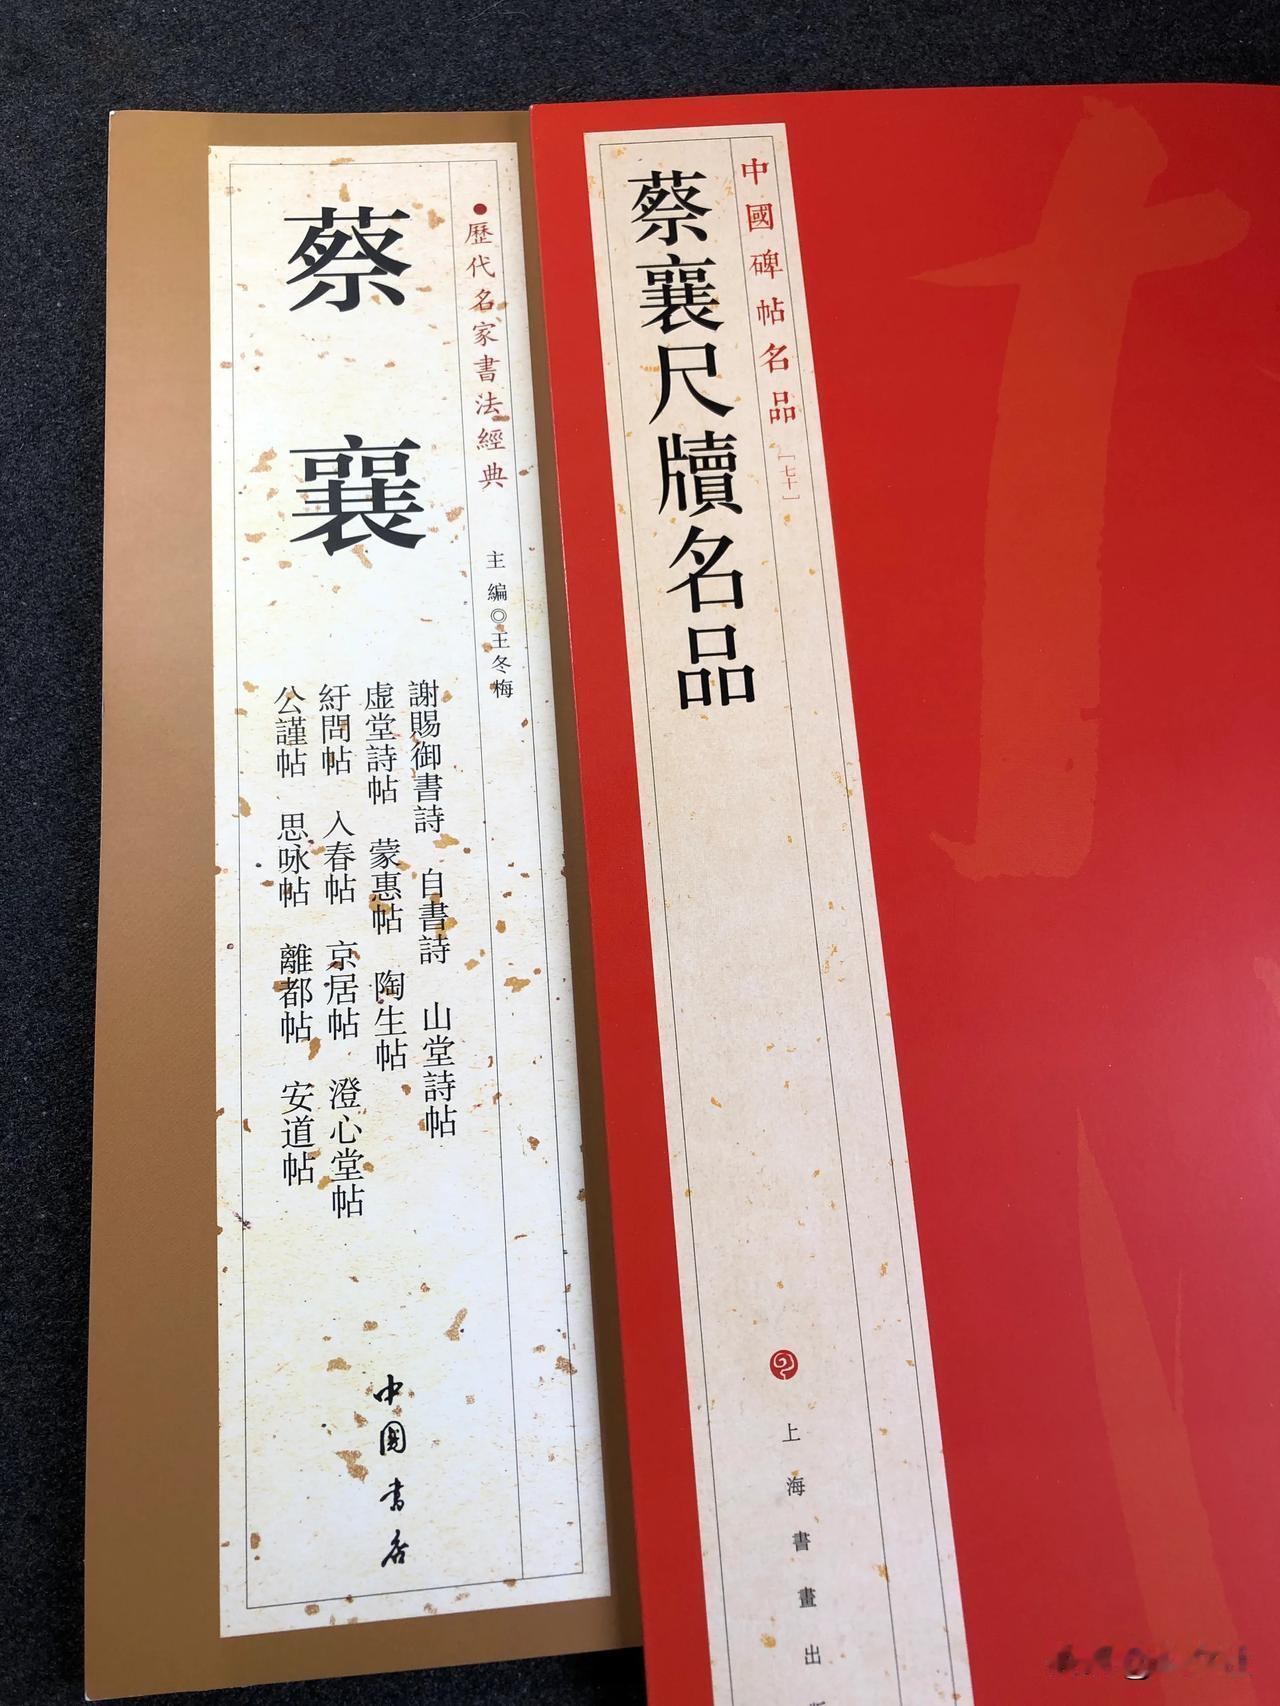 蔡襄
●歷代名家書法經典
主編◎王冬梅
謝賜御書詩 自書詩 山堂詩帖
虚堂詩帖 蒙惠帖 陶生帖
紆問帖 入春帖 京居帖 澄心堂帖
公謹帖 思咏帖 離都帖 安道帖
中国书店
中國碑帖名品[七十]
蔡襄尺牘名品
上海書畫出